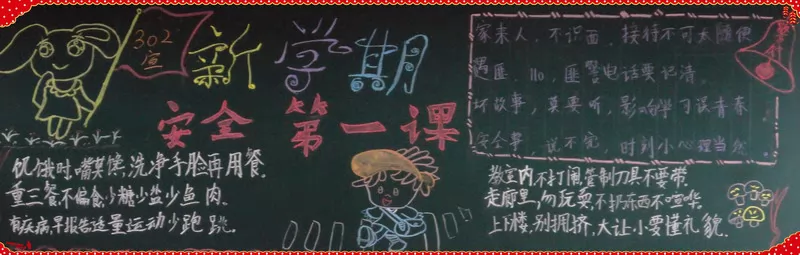 302
宣
新学期
安全第一课
家来人，不识面，接待不可太随便
遇匪，110，匪警电话要记清。
坏故事，莫要听，影响学习误青春
安全事，说不完，时刻小心理当然
饥饿时，嘴莫馋，洗净手脸再用餐。
重三餐，不偏食，少糖少盐少鱼肉。
有疾病，早报告，适量运动少跑跳。
教室内，不打闹，管制刀具不要带。
走廊里，勿玩耍，不扔东西不喧哗。
上下楼，别拥挤，大让小要懂礼貌。